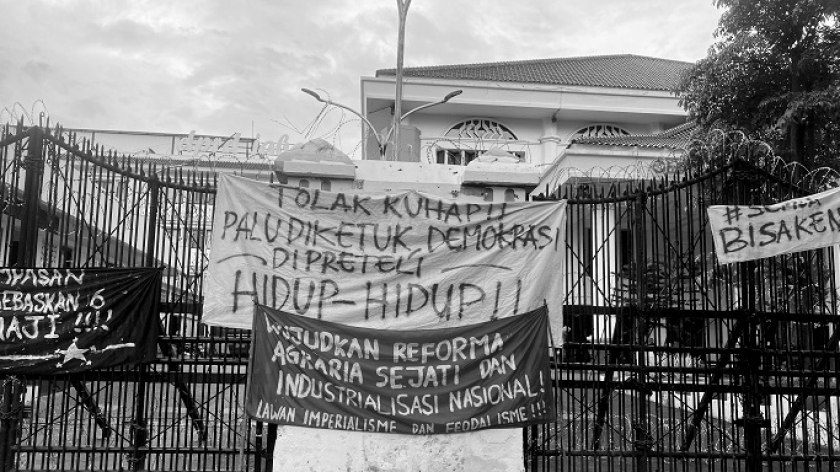 TOLAK KUHAP!!
PALU DIKETUK DEMOKRASI
DIPRETELI
HIDUP-HIDUP!!
WUJUDKAN REFORMA
AGRARIA SEJATI DAN
INDUSTRIALISASI NASIONAL!
LAWAN IMPERIALISME DAN FEODALISME!!!
EBASKAN 6
AJI !!!
BISAKEN